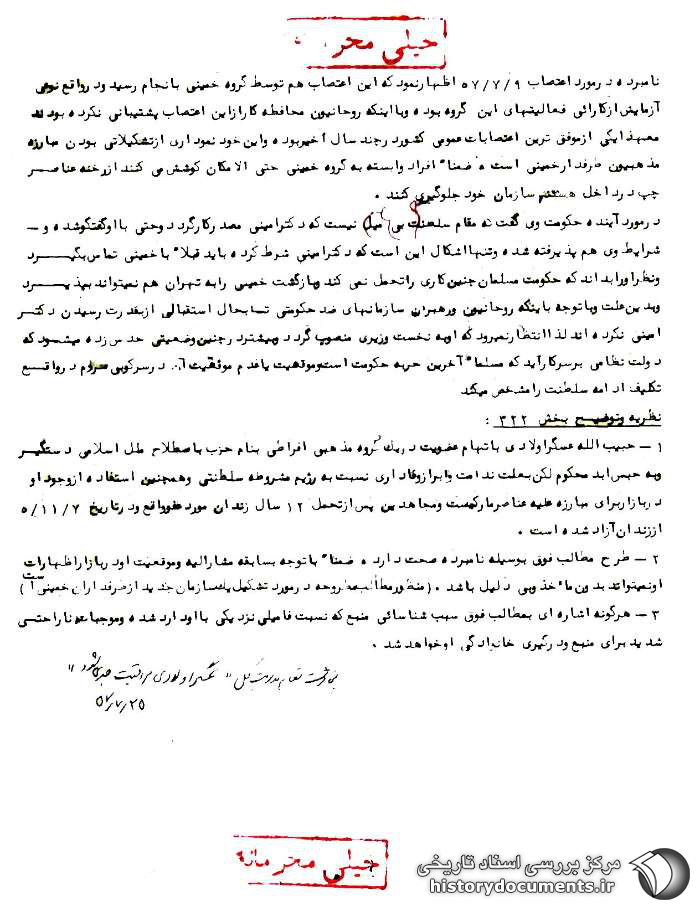 خیلی محر
نامبرده در مورد اعتصاب ۵۷/۷/۹ اظهار نمود که این اعتصاب هم توسط گروه خمینی بانجام رسید ودر واقع نوعی
آزمایش از کارائی فعالیتهای این گروه بوده وبا اینکه روحانیون محافظه کار از این اعتصاب پشتیبانی نکرده بودند
معهذا یکی از موفق ترین اعتصابات عمومی کشور در چند سال اخیر بوده واین خود نموداری از تشکیلاتی بودن مبارزه
مذهبیون طرفدار خمینی است ه ضمنا" افراد وابسته به گروه خمینی حتی الامکان کوشش می کنند از رخنه عناصر
چپ در داخل سازمان خود جلوگیری کنند .
در مورد آینده حکومت وی گفت که مقام سلطنت بی میل نیست که دکتر امینی مصدر کار گردد وحتی با او گفتگو شده و -
شرایط وی هم پذیرفته شده وتنها اشکال این است که دکتر امینی شرط کرده باید قبلا" با خمینی تماس بگیرد
ونظر اورا بداند که حکومت مسلمان چنین کاری را تحمل نمی کند وبازگشت خمینی را به تهران هم نمیتواند بپذیرد
وبدین علت وبا توجه باینکه روحانیون ورهبران سازمانهای ضد حکومتی تا بحال استقبالی از بقدرت رسیدن دکتر
امینی نکرده اند لذا انتظار نمیرود که او به نخست وزیری منصوب گردد وبیشتر در چنین وضعیتی حدس زده میشود که
دولت نظامی بر سر کار آید که مسلما" آخرین حربه حکومت است وموفقیت یا عدم موفقیت آن در سرکوبی مردم در واقع
تکلیف ادامه سلطنت را مشخص میکند
نظریه وتوضیح بخش ۳۲۲ :
۱ - حبیب الله عسگراولادی باتهام عضویت در یك گروه مذهبی افراطی بنام حزب باصطلاح ملل اسلامی دستگیر
وبه حبس ابد محکوم لکن بعلت ندامت وابراز وفاداری نسبت به رژیم مشروطه سلطنتی وهمچنین استفاده از وجود او
در بازار برای مبارزه علیه عناصر مارکسیست ومجاهدین پس از تحمل ۱۲ سال زندان مورد عفو واقع ودر تاریخ ۵/۱۱/۷
از زندان آزاد شده است .
۲ - طرح مطالب فوق بوسیله نامبرده صحت دارد ه ضمنا" با توجه بسابقه مشارالیه وموقعیت او در بازار اظهارات
او نمیتواند بدون ماخذ وبی دلیل باشد . (منظور مطالب مطروحه در مورد تشکیل یك سازمان جدید از طرفداران خمینی است)
۳ - هرگونه اشاره ای بمطالب فوق سبب شناسائی منبع که نسبت فامیلی نزدیکی با او دارد شده وموجبات ناراحتی
شدید برای منبع ودرگیری خانوادگی او خواهد شد .
مدیریت کل " عسگراولادی مراقبت جدی شود "
۵۷/۷/۲۵
خیلی محرمانه
مرکز بررسی اسناد تاریخی
historydocuments.ir